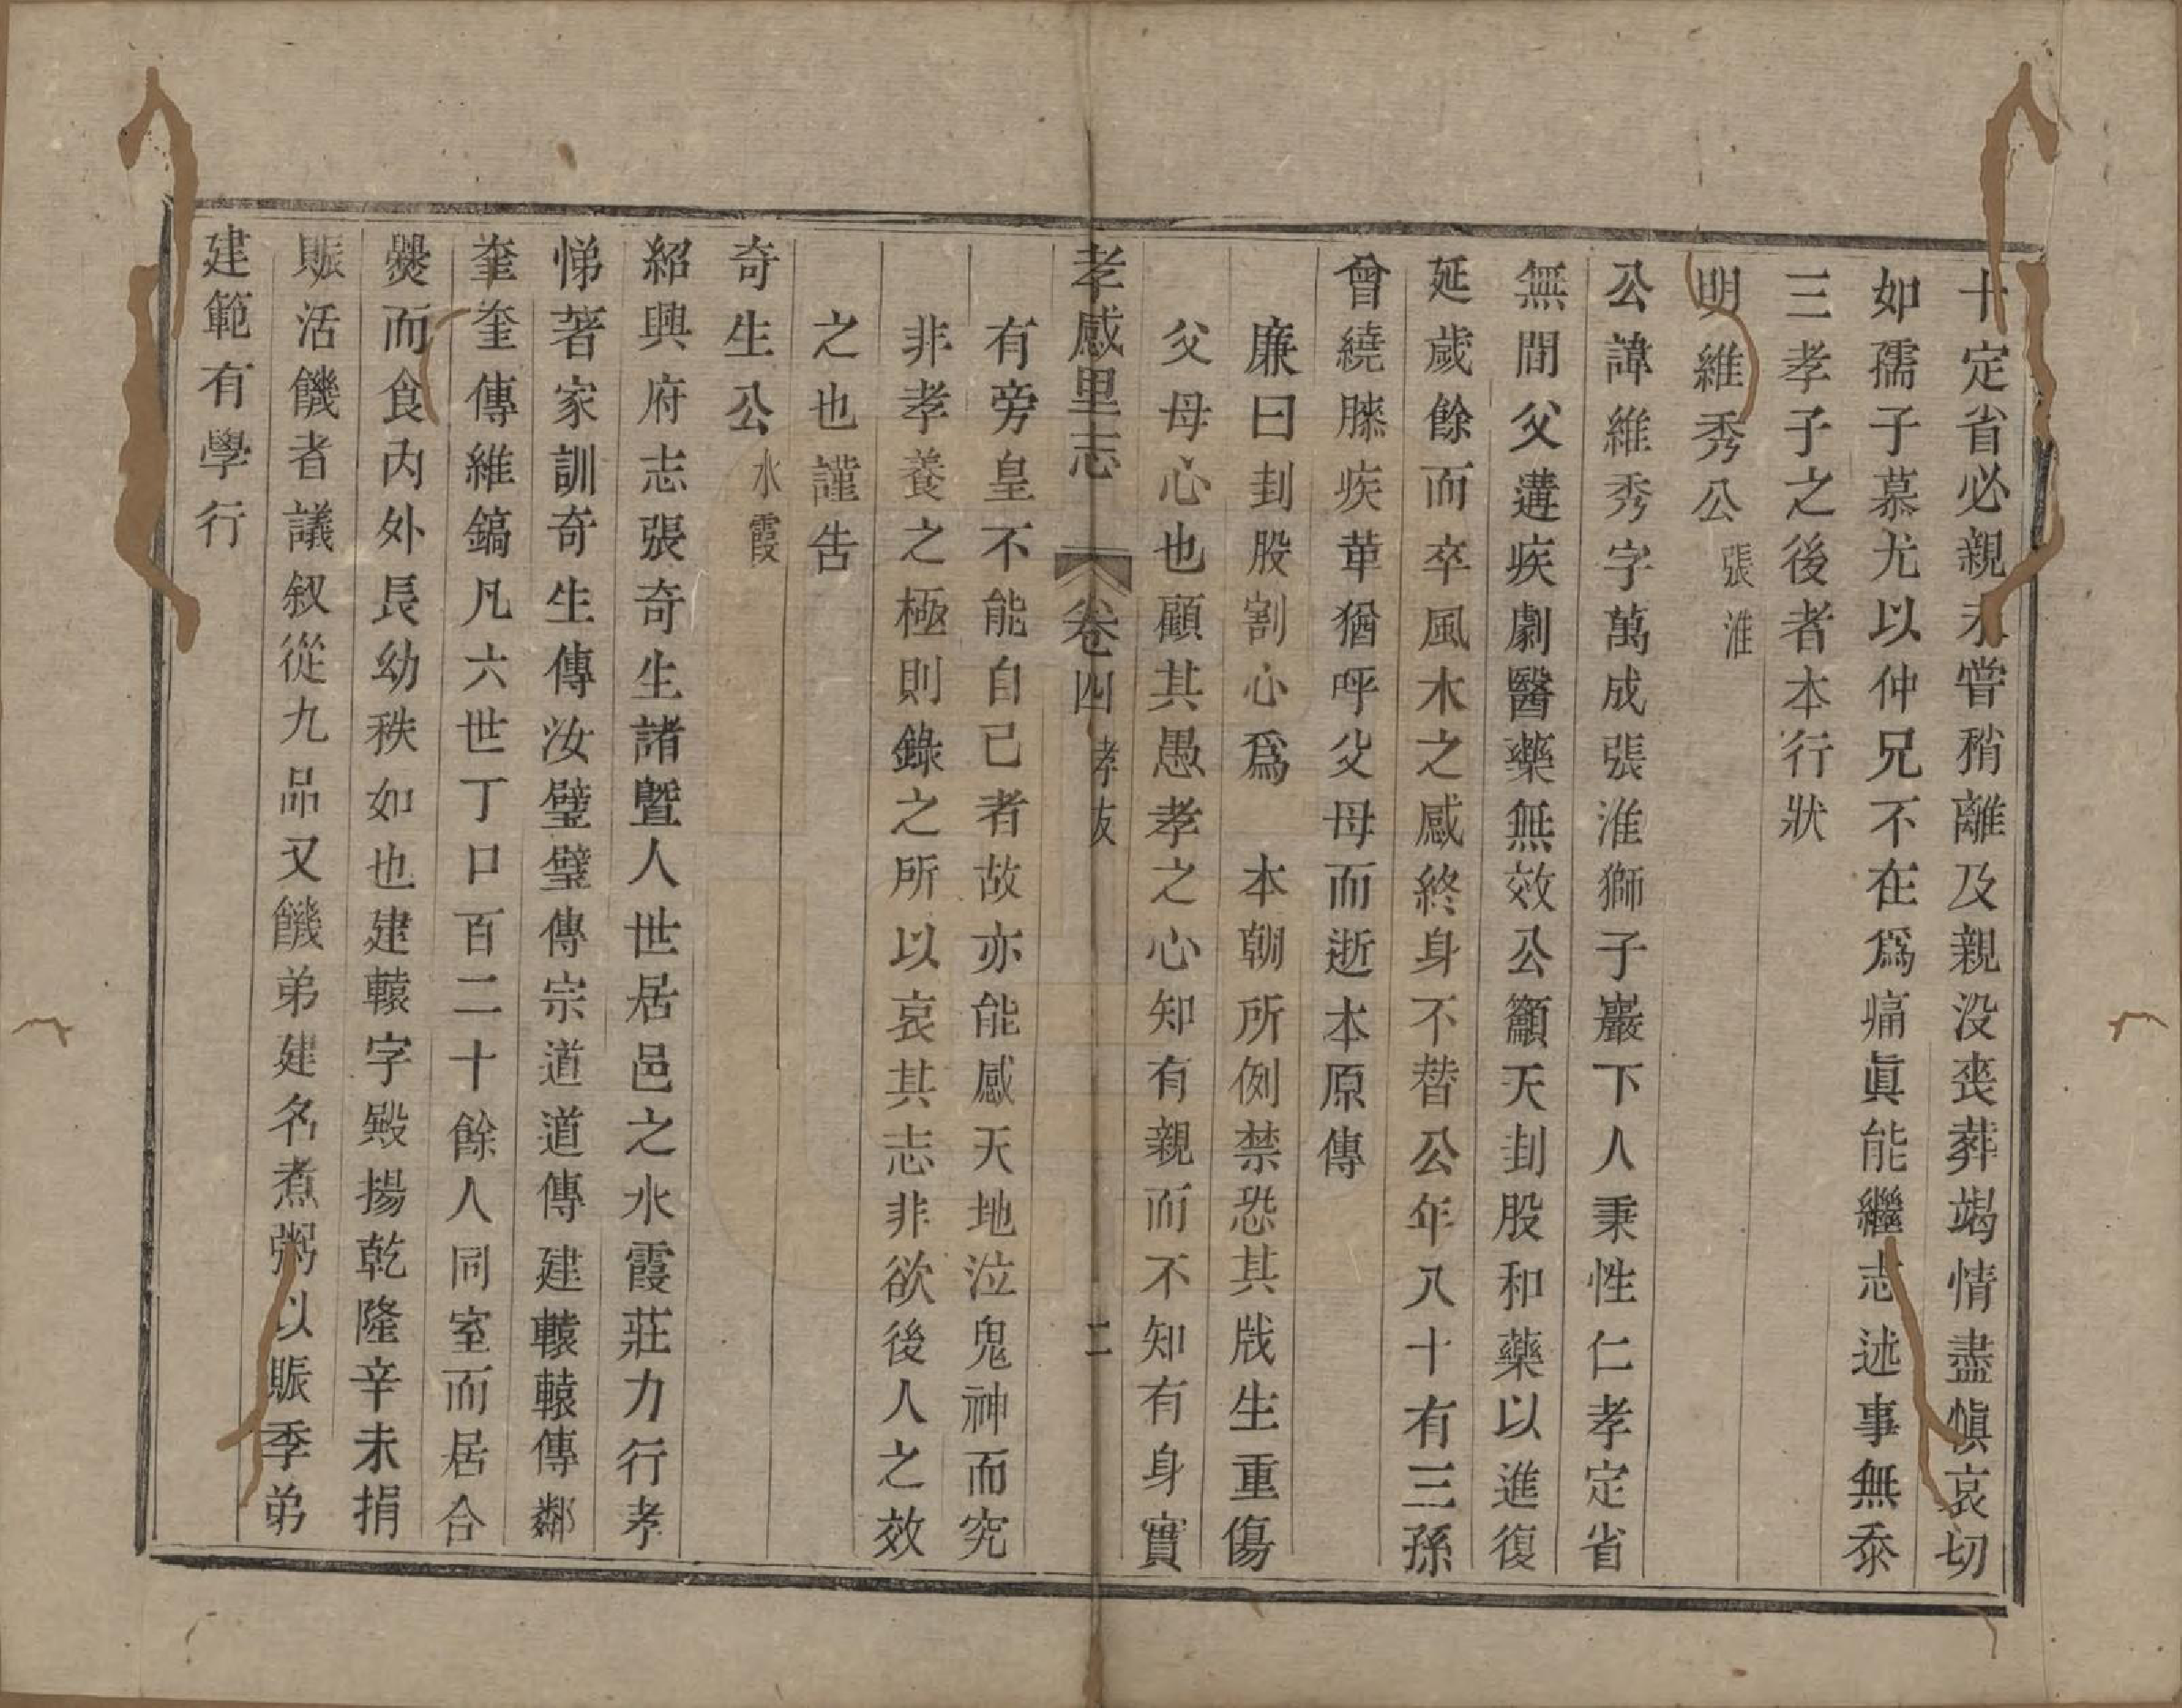 十定省必親未嘗稍離及親没喪葬竭情盡慎哀切
如孺子慕尤以仲兄不在爲痛眞能繼志述事無忝
三孝子之後者本行狀
明維秀公張淮
公諱維秀字萬成張淮獅子巖下人秉性仁孝定省
無間父遘疾劇醫藥無效公籲天刲股和藥以進復
延歲餘而卒風木之感終身不替公年八十有三孫
曾繞膝疾革猶呼父母而逝本原傳
廉曰刲股割心爲　本朝所例禁恐其戕生重傷
父母心也顧其愚孝之心知有親而不知有身實
孝感里志　卷四　孝友　二
有旁皇不能自已者故亦能感天地泣鬼神而究
非孝養之極則錄之所以哀其志非欲後人之效
之也謹告
奇生公水霞
紹興府志張奇生諸曁人世居邑之水霞莊力行孝
悌著家訓奇生傳汝璧璧傳宗道道傳建轅轅傳鄰
奎奎傳維鎬凡六世丁口百二十餘人同室而居合
爨而食内外長幼秩如也建轅字殿揚乾隆辛未捐
賑活饑者議叙從九品又饑弟建名煮粥以賑季弟
建範有學行